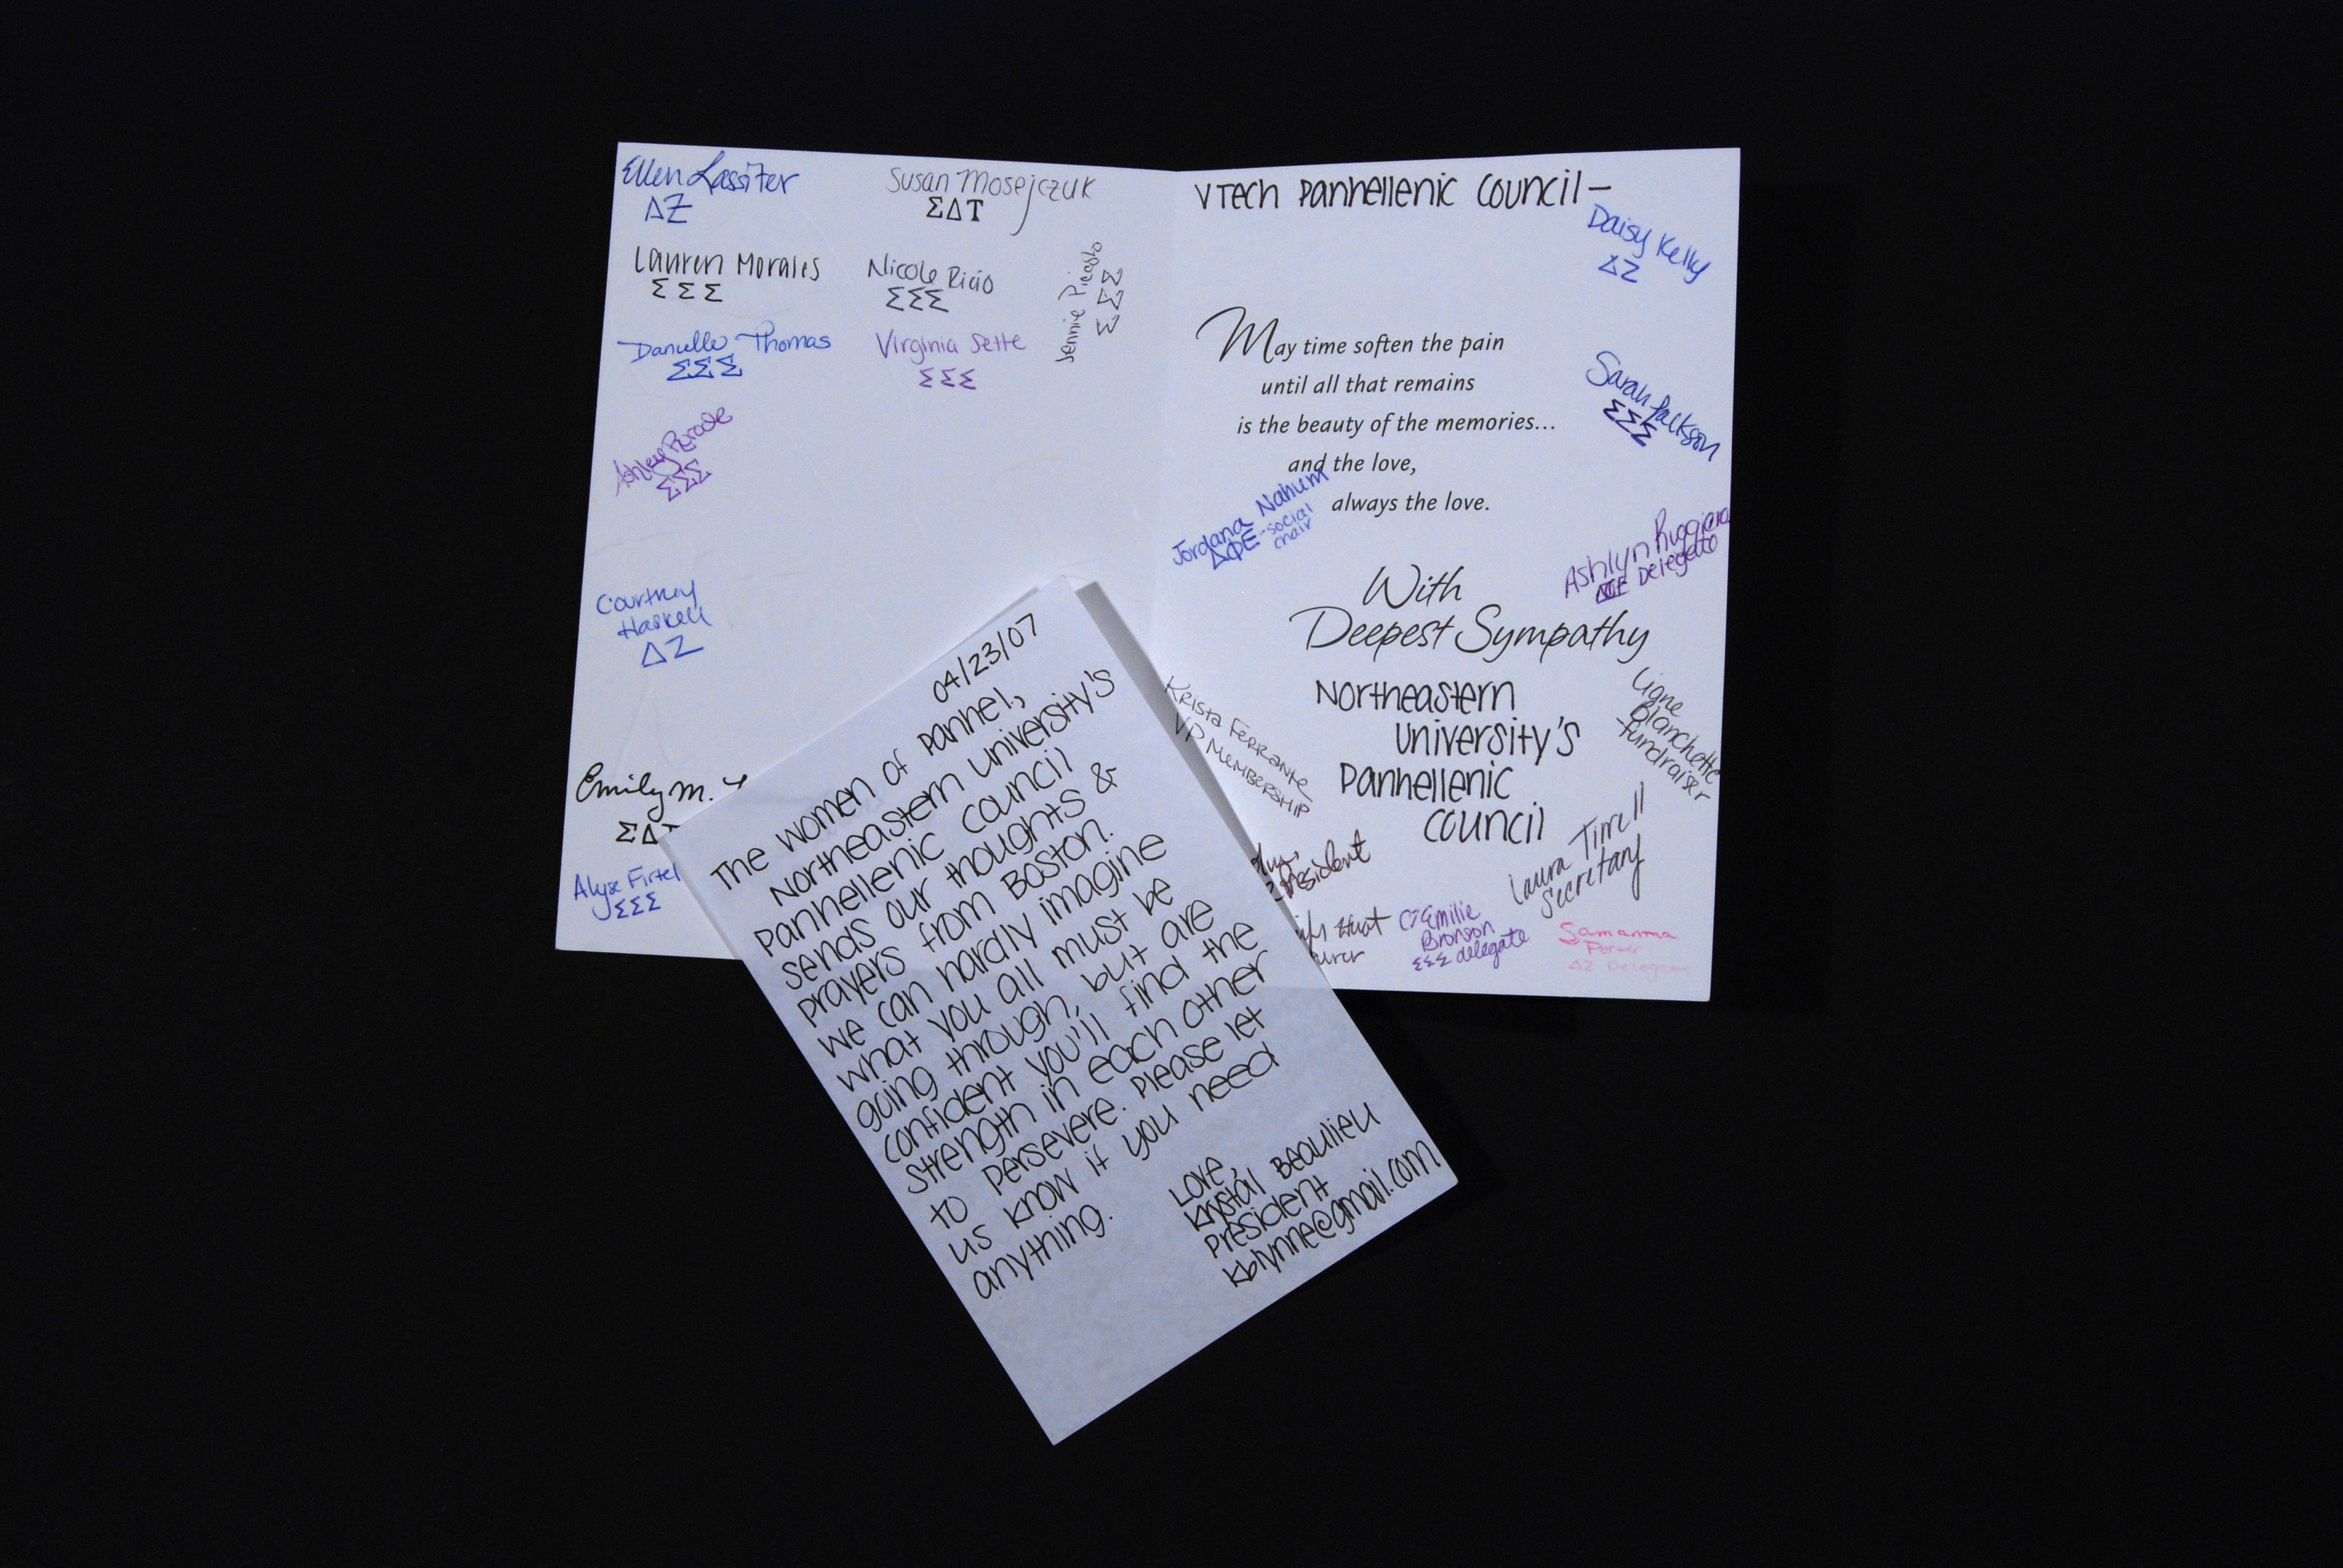 Ellen Lassiter
ΔZ
Susan Mosejczuk
ΣΔT
Lauren Morales
ΣΣΣ
Nicole Ricio
ΣΣΣ
Jennie Picasto
ΣΣΣ
Danielle Thomas
ΣΣΣ
Virginia Sette
ΣΣΣ
Ashley
ΣΣΣ
Courtney
Haskell
ΔZ
Emily M.
ΣΔT
Alyse Firtel
ΣΣΣ
VTech Panhellenic Council—
Daisy Kelly
ΔZ
May time soften the pain
until all that remains
is the beauty of the memories...
and the love,
always the love.
Sarah Jackson
ΣΣΣ
Jordana Nahum
ΔΦE - social
chair
Ashlyn Ruggiero
Delegate
With
Deepest Sympathy
Northeastern
University's
Panhellenic
Council
Krista Ferrante
VP Membership
Ligne
Blanchette
fundraiser
Laura Tirrell
Secretary
President
Emilie
Bronson
ΣΣΣ delegate
Samantha
ΔZ Delegate
04/23/07
The women of panhel,
Northeastern University's
Panhellenic Council
sends our thoughts &
prayers from Boston.
We can hardly imagine
what you all must be
going through, but are
confident you'll find the
strength in each other
to persevere. Please let
us know if you need
anything.
Love,
Krystal Beaulieu
President
kblynne@gmail.com